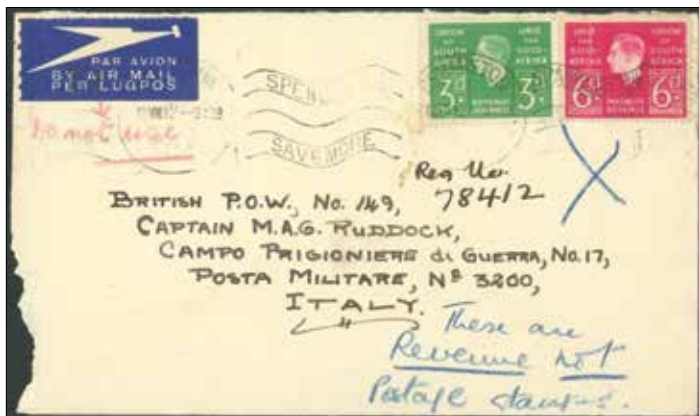 PAR AVION
BY AIR MAIL
PER LUGPOS
Do not use
SPEND
SAVE MORE
UNION OF SOUTH AFRICA
UNIE VAN SUID-AFRIKA
3d 3d
REVENUE INKOMSTE
UNIE VAN SUID-AFRIKA
UNION OF SOUTH AFRICA
6d 6d
INKOMSTE REVENUE
Reg No.
78412
BRITISH P.O.W., No. 149,
CAPTAIN M.A.G. RUDDOCK,
CAMPO PRIGIONIERE di GUERRA, No. 17,
POSTA MILITARE, Nº 3200,
ITALY.
These are
Revenue not
Postage stamps.